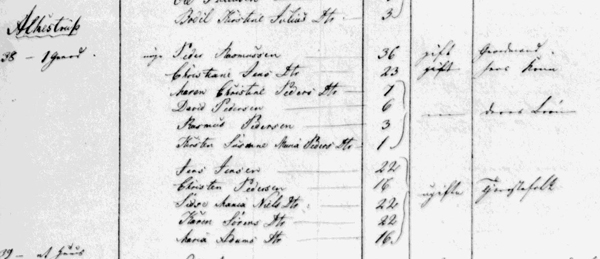 Bodil Kirstine Juliad Dtr 3
Alkestrup
38 - 1 Gaard Peder Rasmussen 36 gift Gaardmand
Christiane Jens Dtr 23 gift hans Kone
Maren Christine Peders Dtr 7
David Pedersen 6 deres Børn
Rasmus Pedersen 3
Kirsten Susanne Maria Peders Dtr 1
Jens Jensen 22
Christen Pedersen 16 ugifte Tjenestefolk
Sidse Maria Niels Dtr 22
Karen Sørens Dtr 22
Maria Adams Dtr 16
39 - et Huus